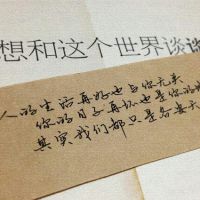 想和这个世界谈谈
人的生活再好也与你无关
你的日子再坏也是你的
其实我们都只是各安天